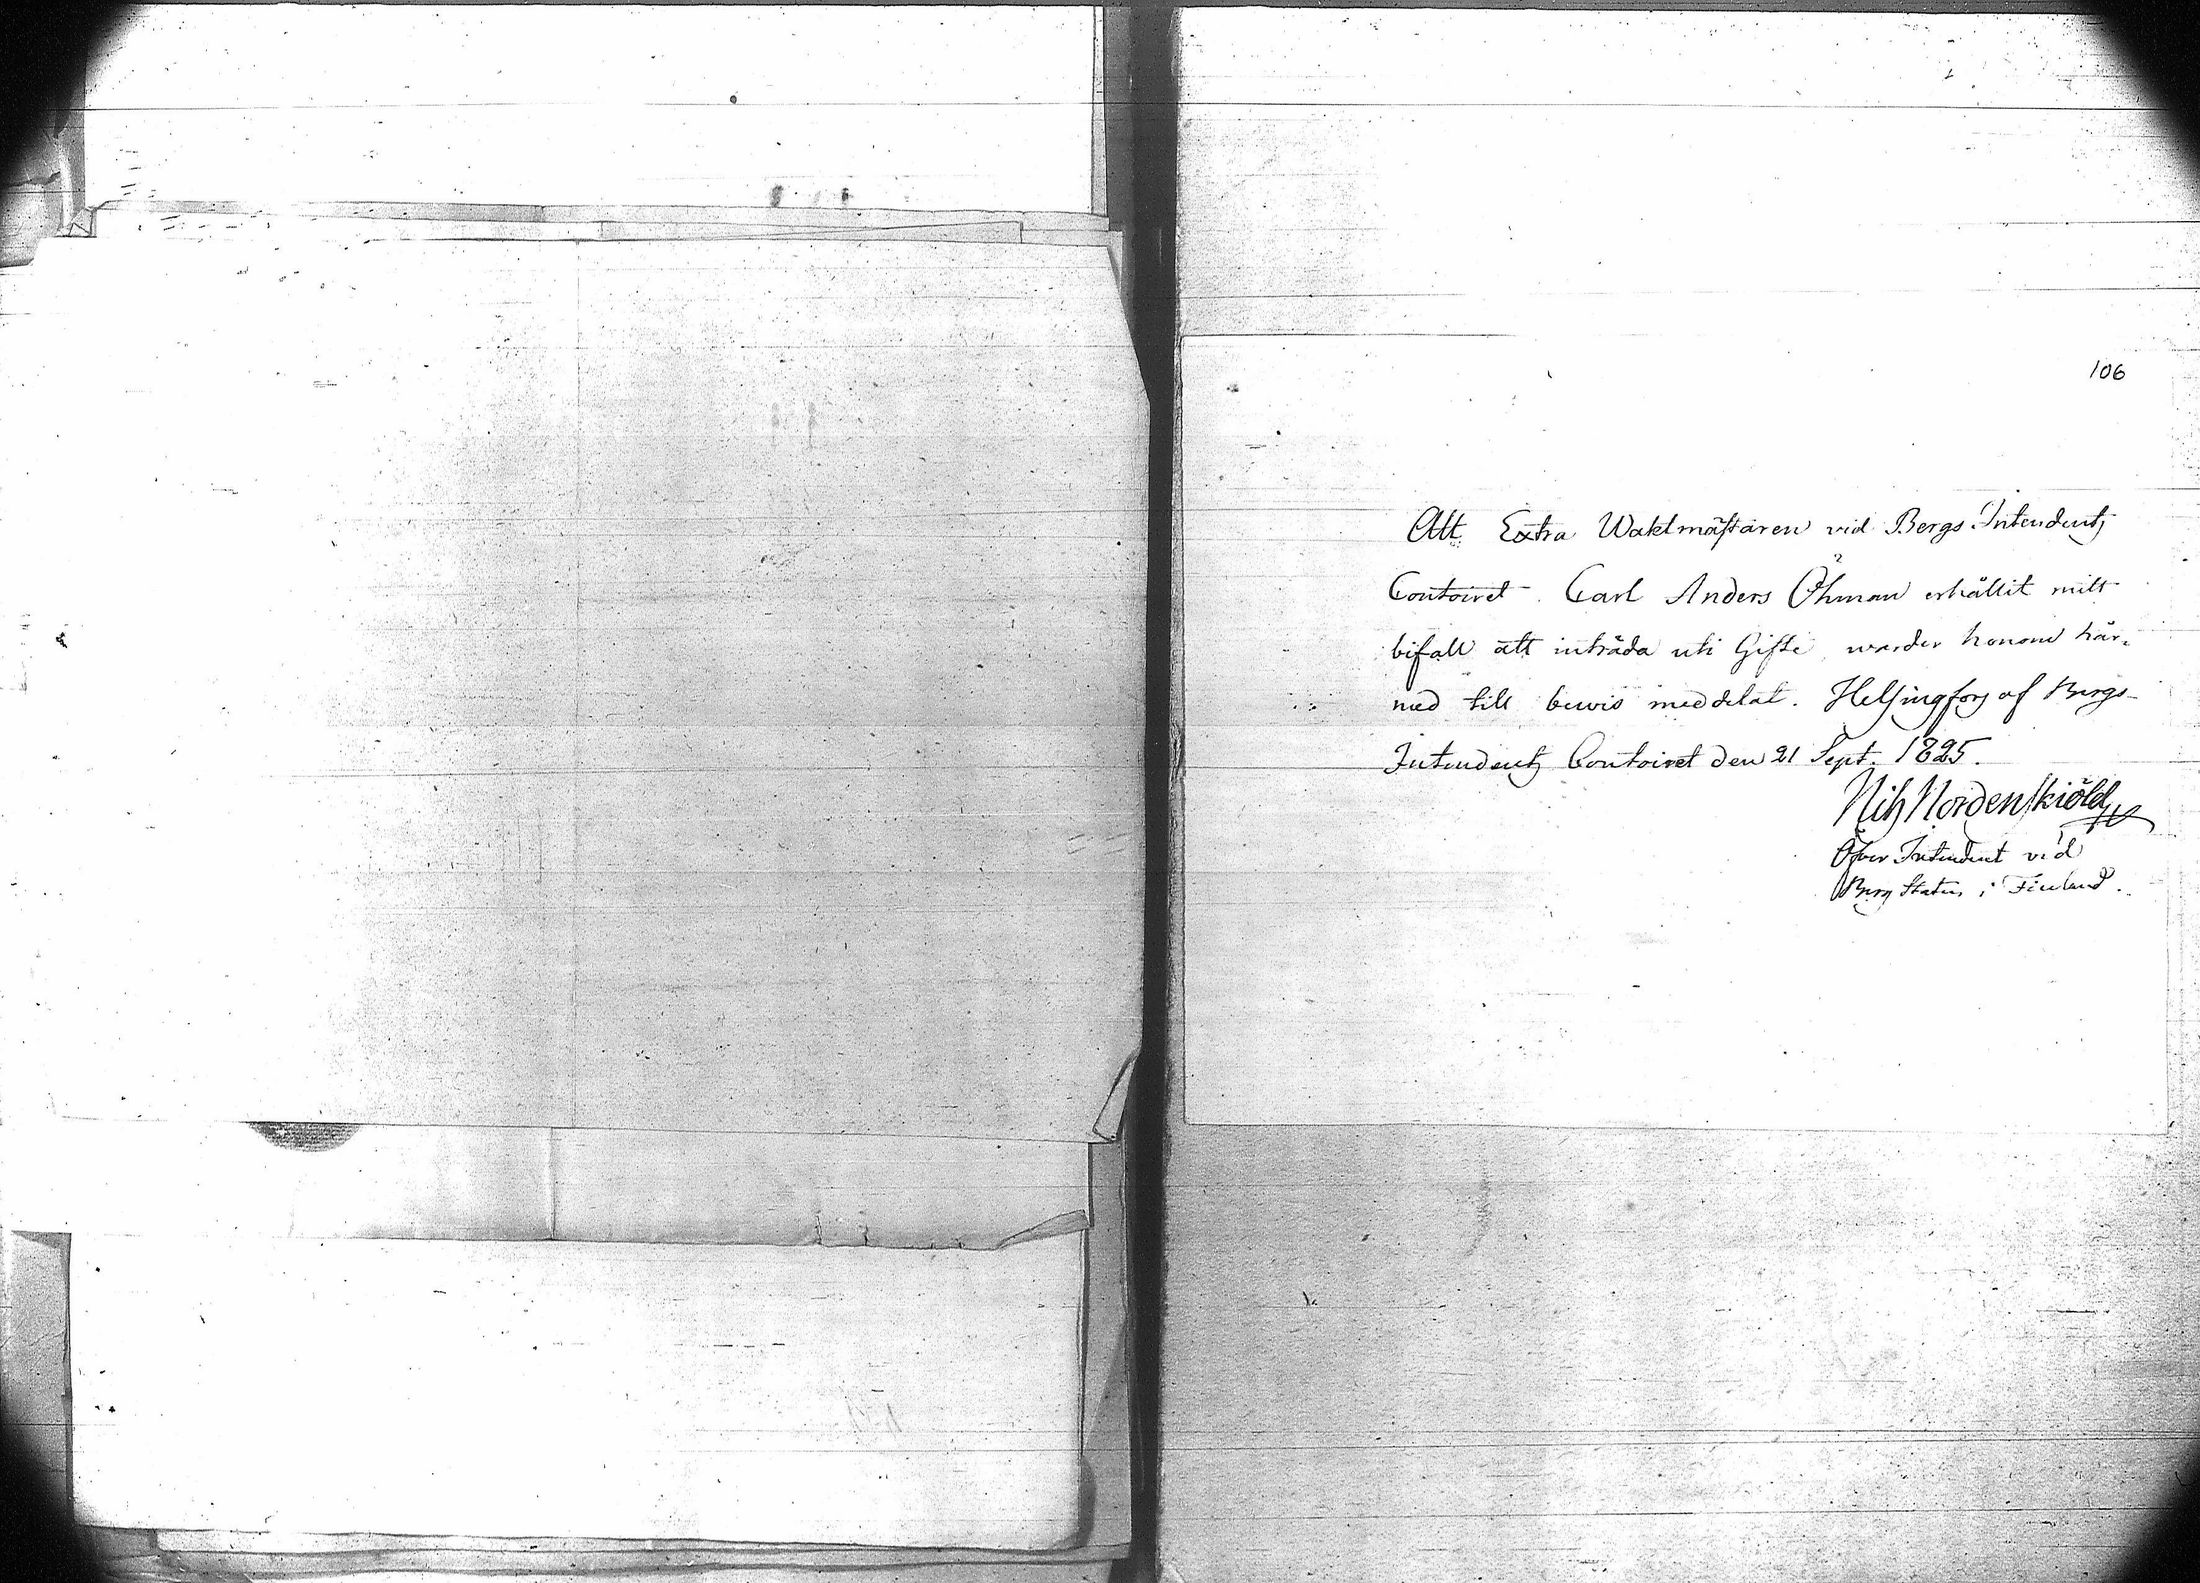 106
Att Extra Waktmästaren vid Bergs Intendents
Contoiret Carl Anders Öhman erhållit mitt
bifall att inträda uti Gifte, warder honom här-
med till bewis meddelat. Helsingfors af Bergs-
Intendents Contoiret den 21 Sept. 1825.
Nils Nordenskiöld
Öfver Intendent vid
Berg Staten i Finland.